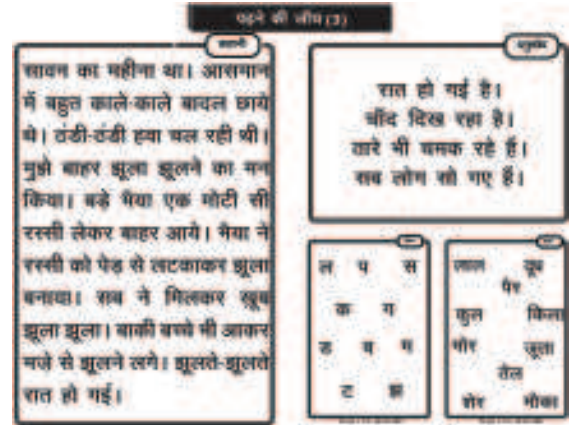 पढ़ने की जाँच (3)
कहानी
सावन का महीना था। आसमान
में बहुत काले-काले बादल छाये
थे। ठंडी-ठंडी हवा चल रही थी।
मुझे बाहर झूला झूलने का मन
किया। बड़े भैया एक मोटी सी
रस्सी लेकर बाहर आये। भैया ने
रस्सी को पेड़ से लटकाकर झूला
बनाया। सब ने मिलकर खूब
झूला झूला। बाकी बच्चे भी आकर
मजे से झूलने लगे। झूलते-झूलते
रात हो गई।
अनुच्छेद
रात हो गई है।
चाँद दिख रहा है।
तारे भी चमक रहे हैं।
सब लोग सो गए हैं।
ल प स
क ग
ड ब म
ट झ
लाल
पैर
कुल किला
मोर जूता
तेल
शेर मौका